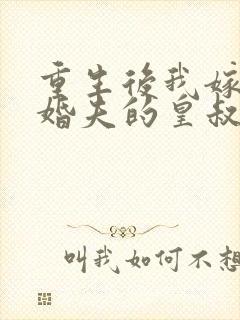 重生後我嫁
婚夫的皇叔
叫我如何不想